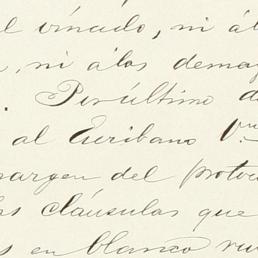 l vinculo, ni á l
, ni álos demas
. Por último d
al Escribano
margen del proto
as cláusulas que
s en blanco